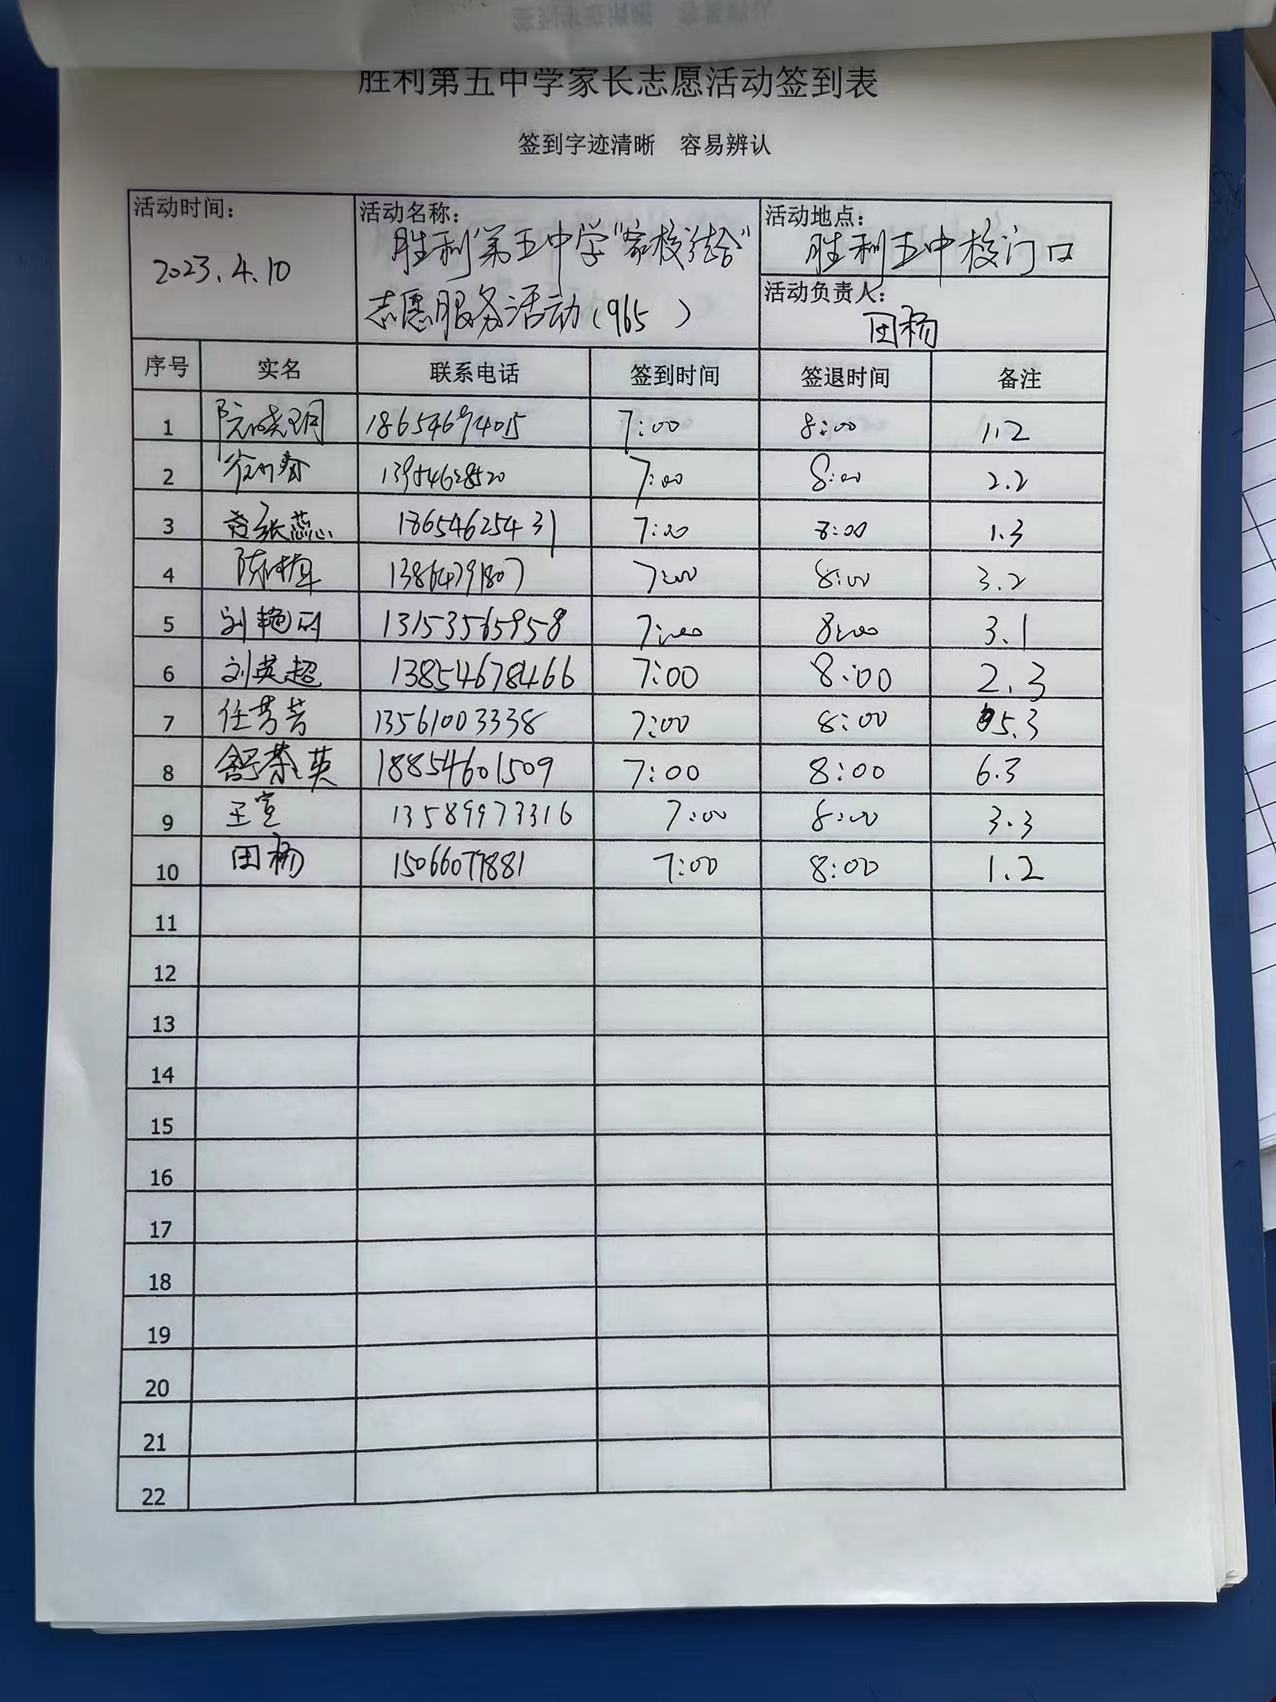 胜利第五中学家长志愿活动签到表
签到字迹清晰 容易辨认
活动时间: 2023.4.10
活动名称: 胜利第五中学"家校结合"
志愿服务活动(965 )
活动地点: 胜利五中校门口
活动负责人: 田杨
序号 实名 联系电话 签到时间 签退时间 备注
1 阮晓玥 18654694015 7:00 8:00 1.2
2 13954628520 7:00 8:00 2.2
3 张蕊 18654625431 7:00 8:00 1.3
4 13864791807 7:00 8:00 3.2
5 刘艳丽 13153565958 7:00 8:00 3.1
6 刘英超 13854678466 7:00 8:00 2.3
7 任芳芳 13561003338 7:00 8:00 5.3
8 舒荣英 18854601509 7:00 8:00 6.3
9 王宣 13589973316 7:00 8:00 3.3
10 田杨 15066077881 7:00 8:00 1.2
11
12
13
14
15
16
17
18
19
20
21
22